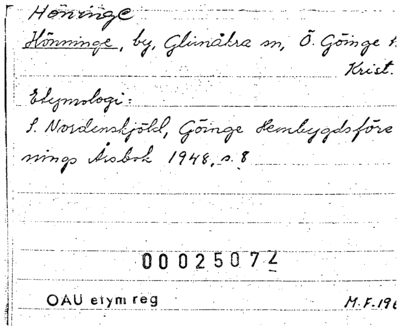 Hönninge
Hönninge, by, Glimåkra sn, Ö. Göinge h.
Krist.
Etymologi:
S. Nordenskjöld, Göinge Hembygdsföre
nings Årsbok 1948, s. 8
00025072
OAU etym reg
M.F. 196